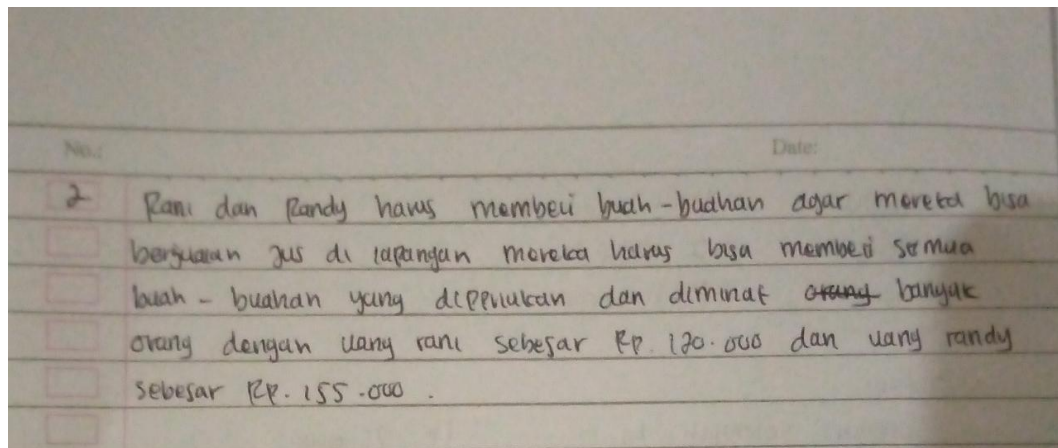 No.: Date:
2 Rani dan Randy harus membeli buah-buahan agar mereka bisa
berjualan jus di lapangan mereka harus bisa membeli semua
buah-buahan yang diperlukan dan diminat orang banyak
orang dengan uang rani sebesar Rp. 120.000 dan uang randy
sebesar Rp. 155.000.